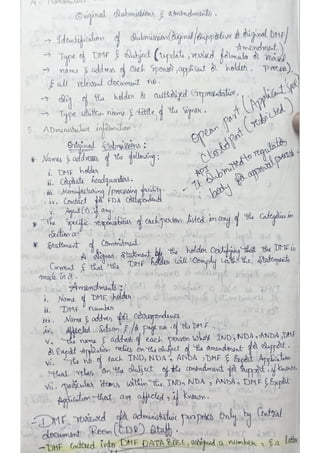 A. Transmittal
Original Submissions & amendments.
→ Identification of Submission (Original/Supportive & Original DMF/
Amendment)
→ Type of DMF & Subject (update, revised formula or revised
process)
→ name & address of each Sponsor, applicant or holder
& all relevant document no.
→ Sig of the holder & authorized representative
→ Type written name & title of the signer.
Open part (Applicant's part)
Closed part (restricted)
API
It submitted to regulatory
body for approval process.
B. Administrative information:
Original Submissions:
* Names & address of the following:
i. DMF holder
ii. Corporate headquarters.
iii. Manufacturing/processing facility.
iv. Contact for FDA correspondence
v. Agent(s), if any.
* The specific responsibilities of each person listed in any of the Categories in
Section a.
* Statement of Commitment.
A signed statement by the holder certifying that the DMF is
Current & that the DMF holder will Comply with the Statements
made in it.
Amendments:
i. Name of DMF holder
ii. DMF number
iii. Name & address for correspondence
iv. affected Section & /or page no. of the DMF
v. the name & address of each person whose IND, NDA, ANDA, DMF
& Export application relies on the subject of the amendment for support.
vi. the no. of each IND, NDA, ANDA, DMF & Export Application
that relies on the subject of the amendment for Support, if known.
vii. particular items within the IND, NDA, ANDA, DMF & Export
application that are affected, if known.
- DMF reviewed for administrative purposes only by Central
document Room (CDR) Staff.
- DMF entered into DMF DATABASE, assigned a number, & a letter